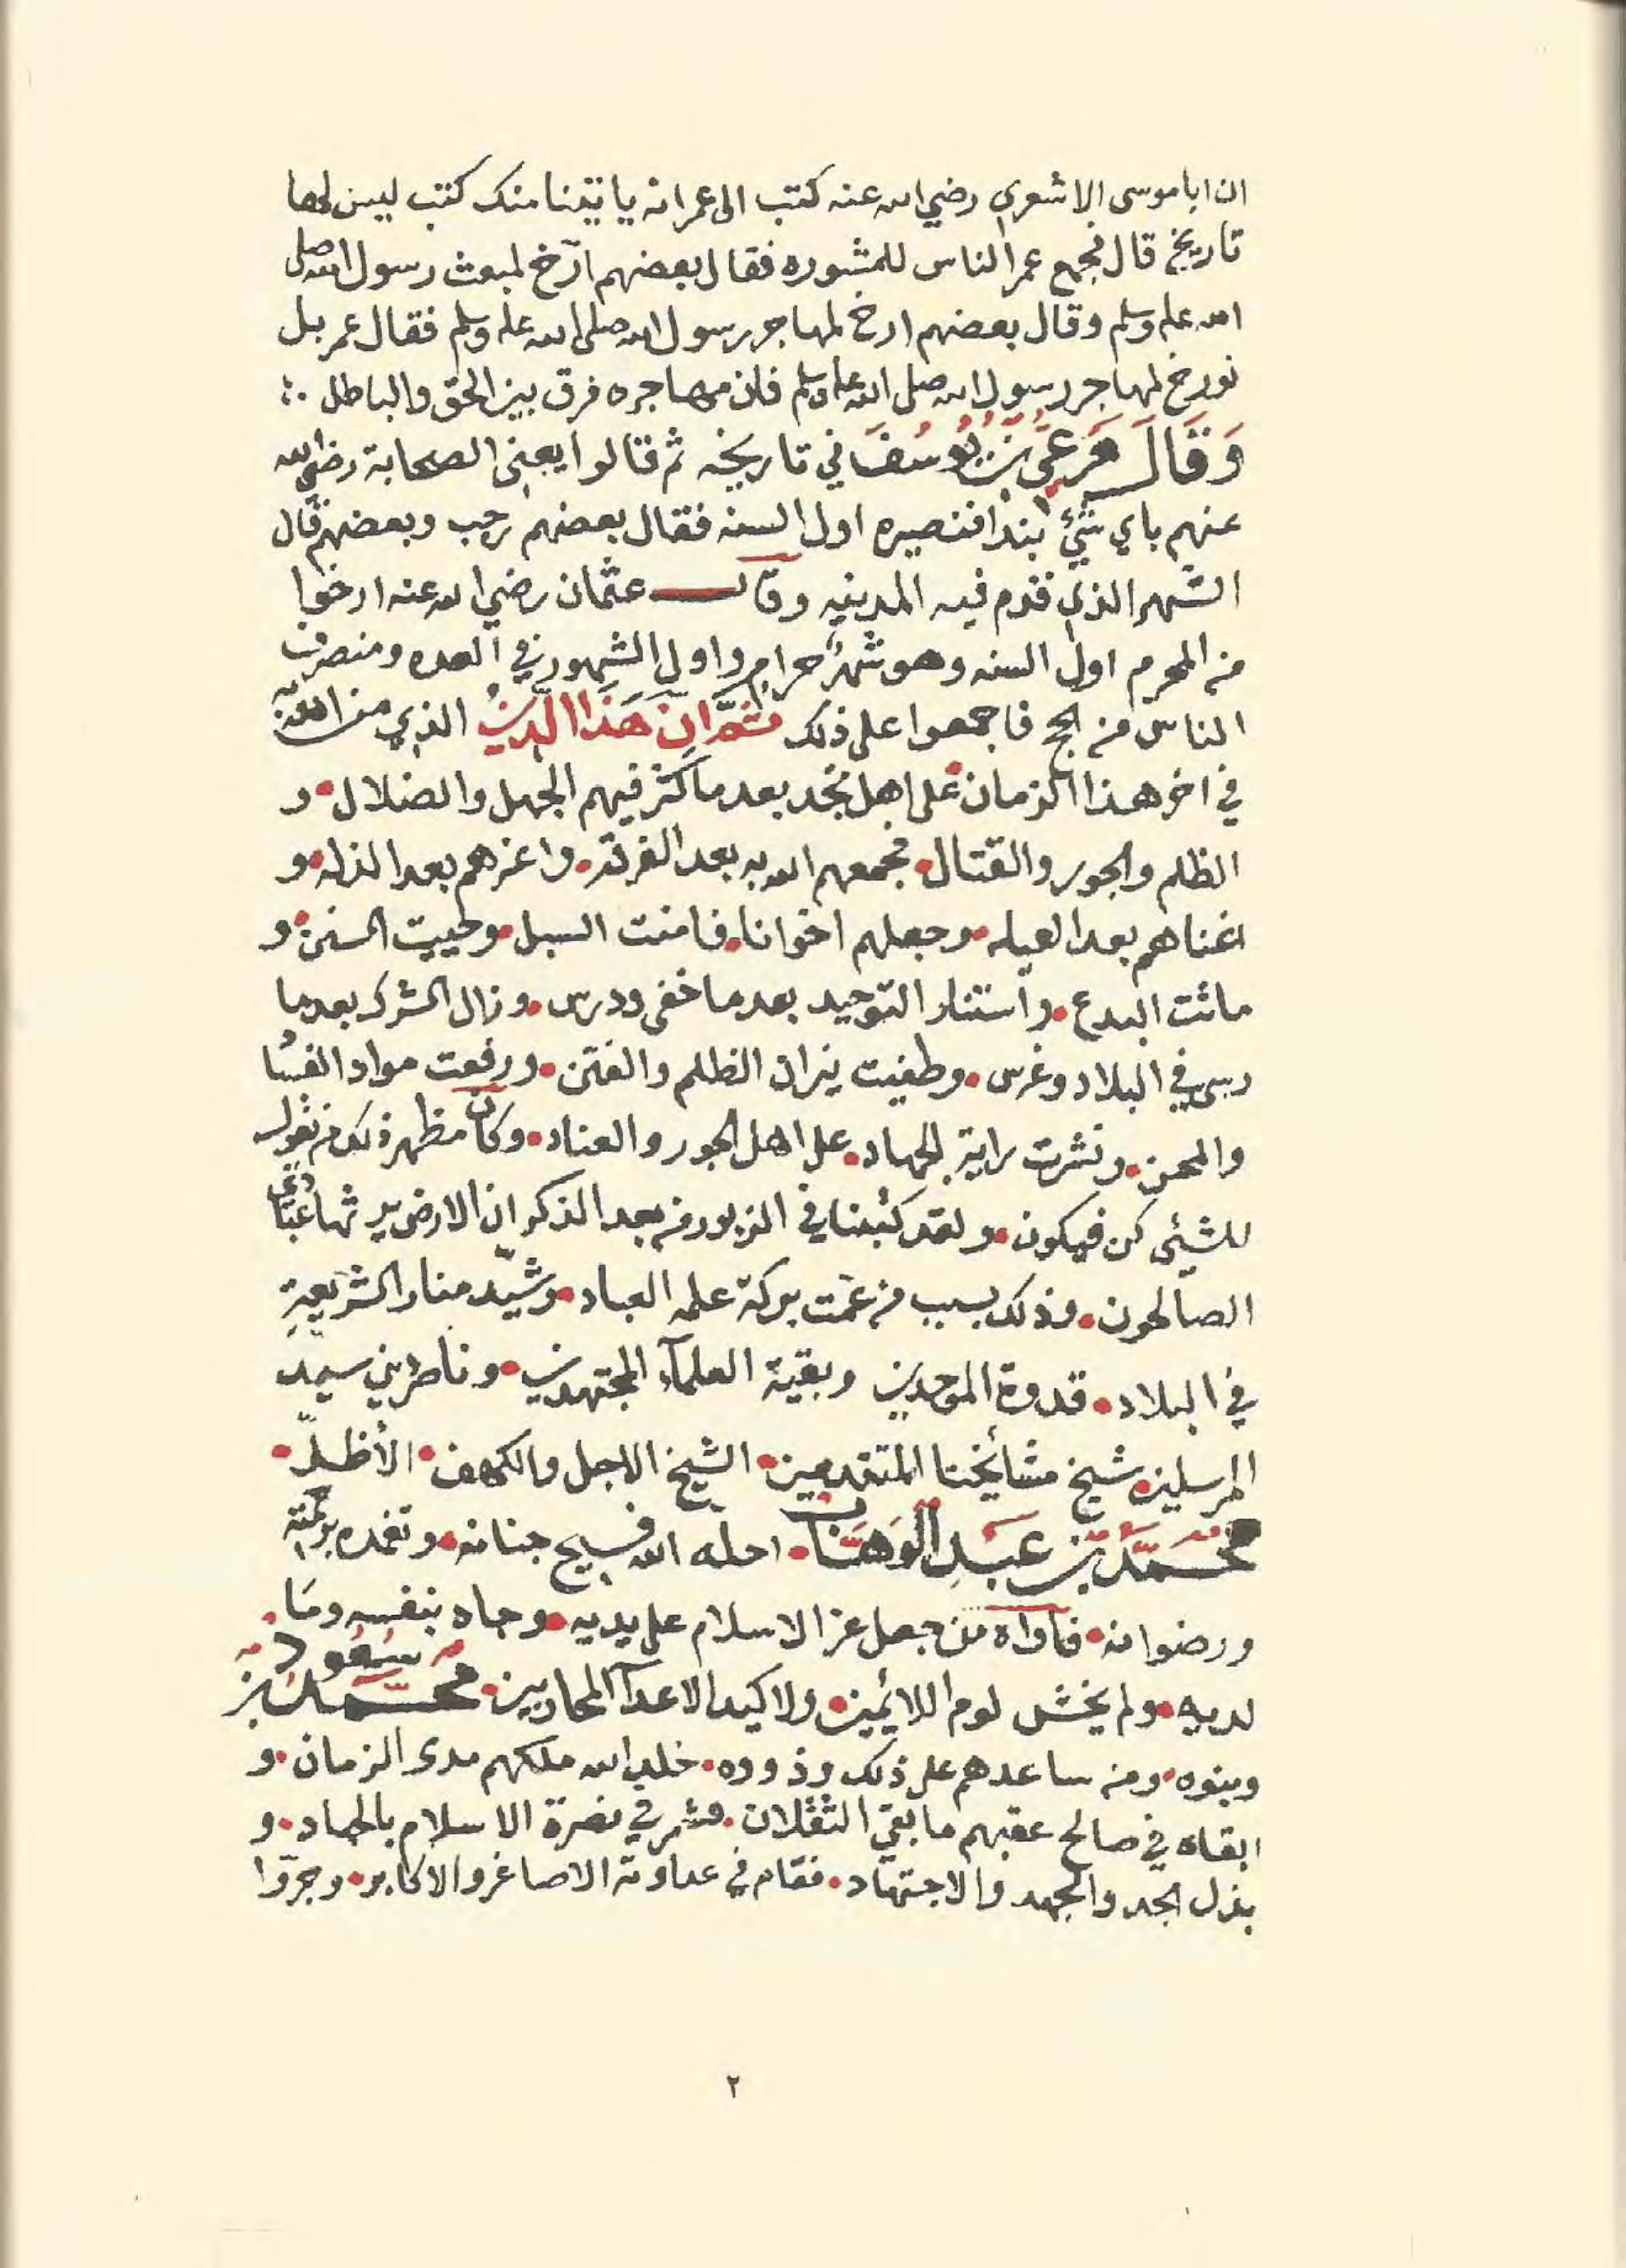 ان اباموسى الاشعري رضي الله عنه كتب الى عمر انه ياتينا منك كتب ليس لها
تاريخ قال فجمع عمر الناس للمشوره فقال بعضهم ارّخ لمبعث رسول الله صلى
الله عليه وسلم وقال بعضهم ارخ لمهاجر رسول الله صلى الله عليه وسلم فقال عمر بل
نورخ لمهاجر رسول الله صلى الله عليه وسلم فان مهاجره فرق بين الحق والباطل
وَقَالَ مَرعيُّ بْنُ يُوسُفَ في تاريخه ثم قالوا يعني الصحابة رضي الله
عنهم باي شيء نبدا فنصيره اول السنه فقال بعضهم رجب وبعضهم قال
الشهر الذي قدم فيه المدينه وقال عثمان رضي الله عنه ارخوا
من المحرم اول السنه وهو شهر حرام واول الشهور في العده ومنصرف
الناس من الحج فاجمعوا على ذلك ثم ان هَذَا الدّينُ الذي منّ الله به
في اخر هذا الزمان على اهل نجد بعد ما كثر فيهم الجهل والضلال • و
الظلم والجور والقتال • فجمعهم الله به بعد الفرقة • واعزهم بعد الذله • و
اغناهم بعد العيله • وجعلهم اخوانا • فامنت السبل • وحييت السنن • و
ماتت البدع • واستنار التوحيد بعد ما خفى ودرس • وزال الشرك بعد ما
رسى في البلاد وغرس • وطفيت نيران الظلم والفتن • ورفعت مواد الفسا
والمحن • ونشرت راية الجهاد • على اهل الجور والعناد • وكان مظهر ذلك من يقول
للشيئ كن فيكون • ولقد كتبنا في الزبور من بعد الذكر ان الارض يرثها عبادي
الصالحون • وذلك بسبب من عمّت بركة علمه العباد • وشيّد منار الشريعةِ
في البلاد • قدوة الموحدين وبقية العلمآء المجتهدين • وناصر دين سيد
المرسلين • شيخ مشائخنا المتقدمين • الشيخ الاجل والكهف • الأظلّ •
محَمّدْ بْن عَبْدِ الوَهّابْ • احله الله فسيح جنانه • وتغمده برحمته
ورضوانه • فآواه من جعل عز الاسلام على يديه • وجاد بنفسه ومَا •
لديه • ولم يخش لوم اللائمين • ولا كيد الاعدآ المحاربين • محَمّد بن سُعُود
وبنوه • ومن ساعدهم على ذلك وذووه • خلد الله ملكهم مدى الزمان • و
ابقاه في صالح عقبهم ما بقي الثقلان • فشمر في نصرة الاسلام بالجهاد • و
بذل الجد والجهد والاجتهاد • فقام في عداوته الاصاغر والاكابر • وجرّوا
٢